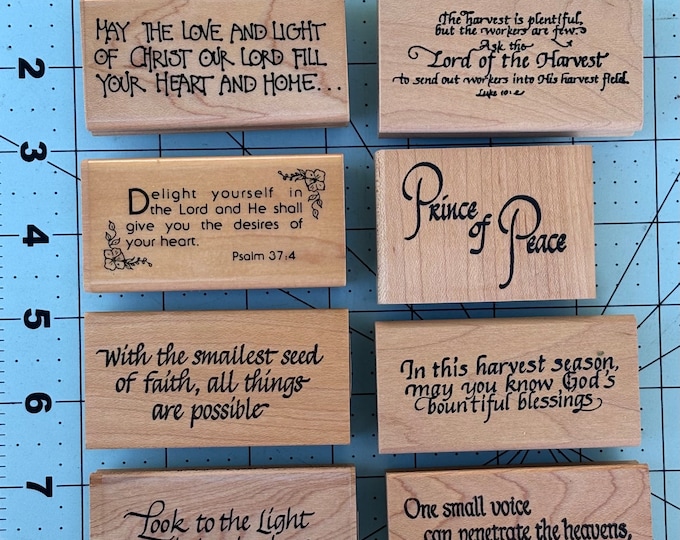 MAY THE LOVE AND LIGHT
OF CHRIST OUR LORD FILL
YOUR HEART AND HOME...
The harvest is plentiful,
but the workers are few.
Ask the
Lord of the Harvest
to send out workers into His harvest field.
Luke 10:2
Delight yourself in
the Lord and He shall
give you the desires of
your heart.
Psalm 37:4
Prince
of
Peace
With the smallest seed
of faith, all things
are possible
In this harvest season,
may you know God's
bountiful blessings
Look to the Light
One small voice
can penetrate the heavens,
2
3
4
5
6
7